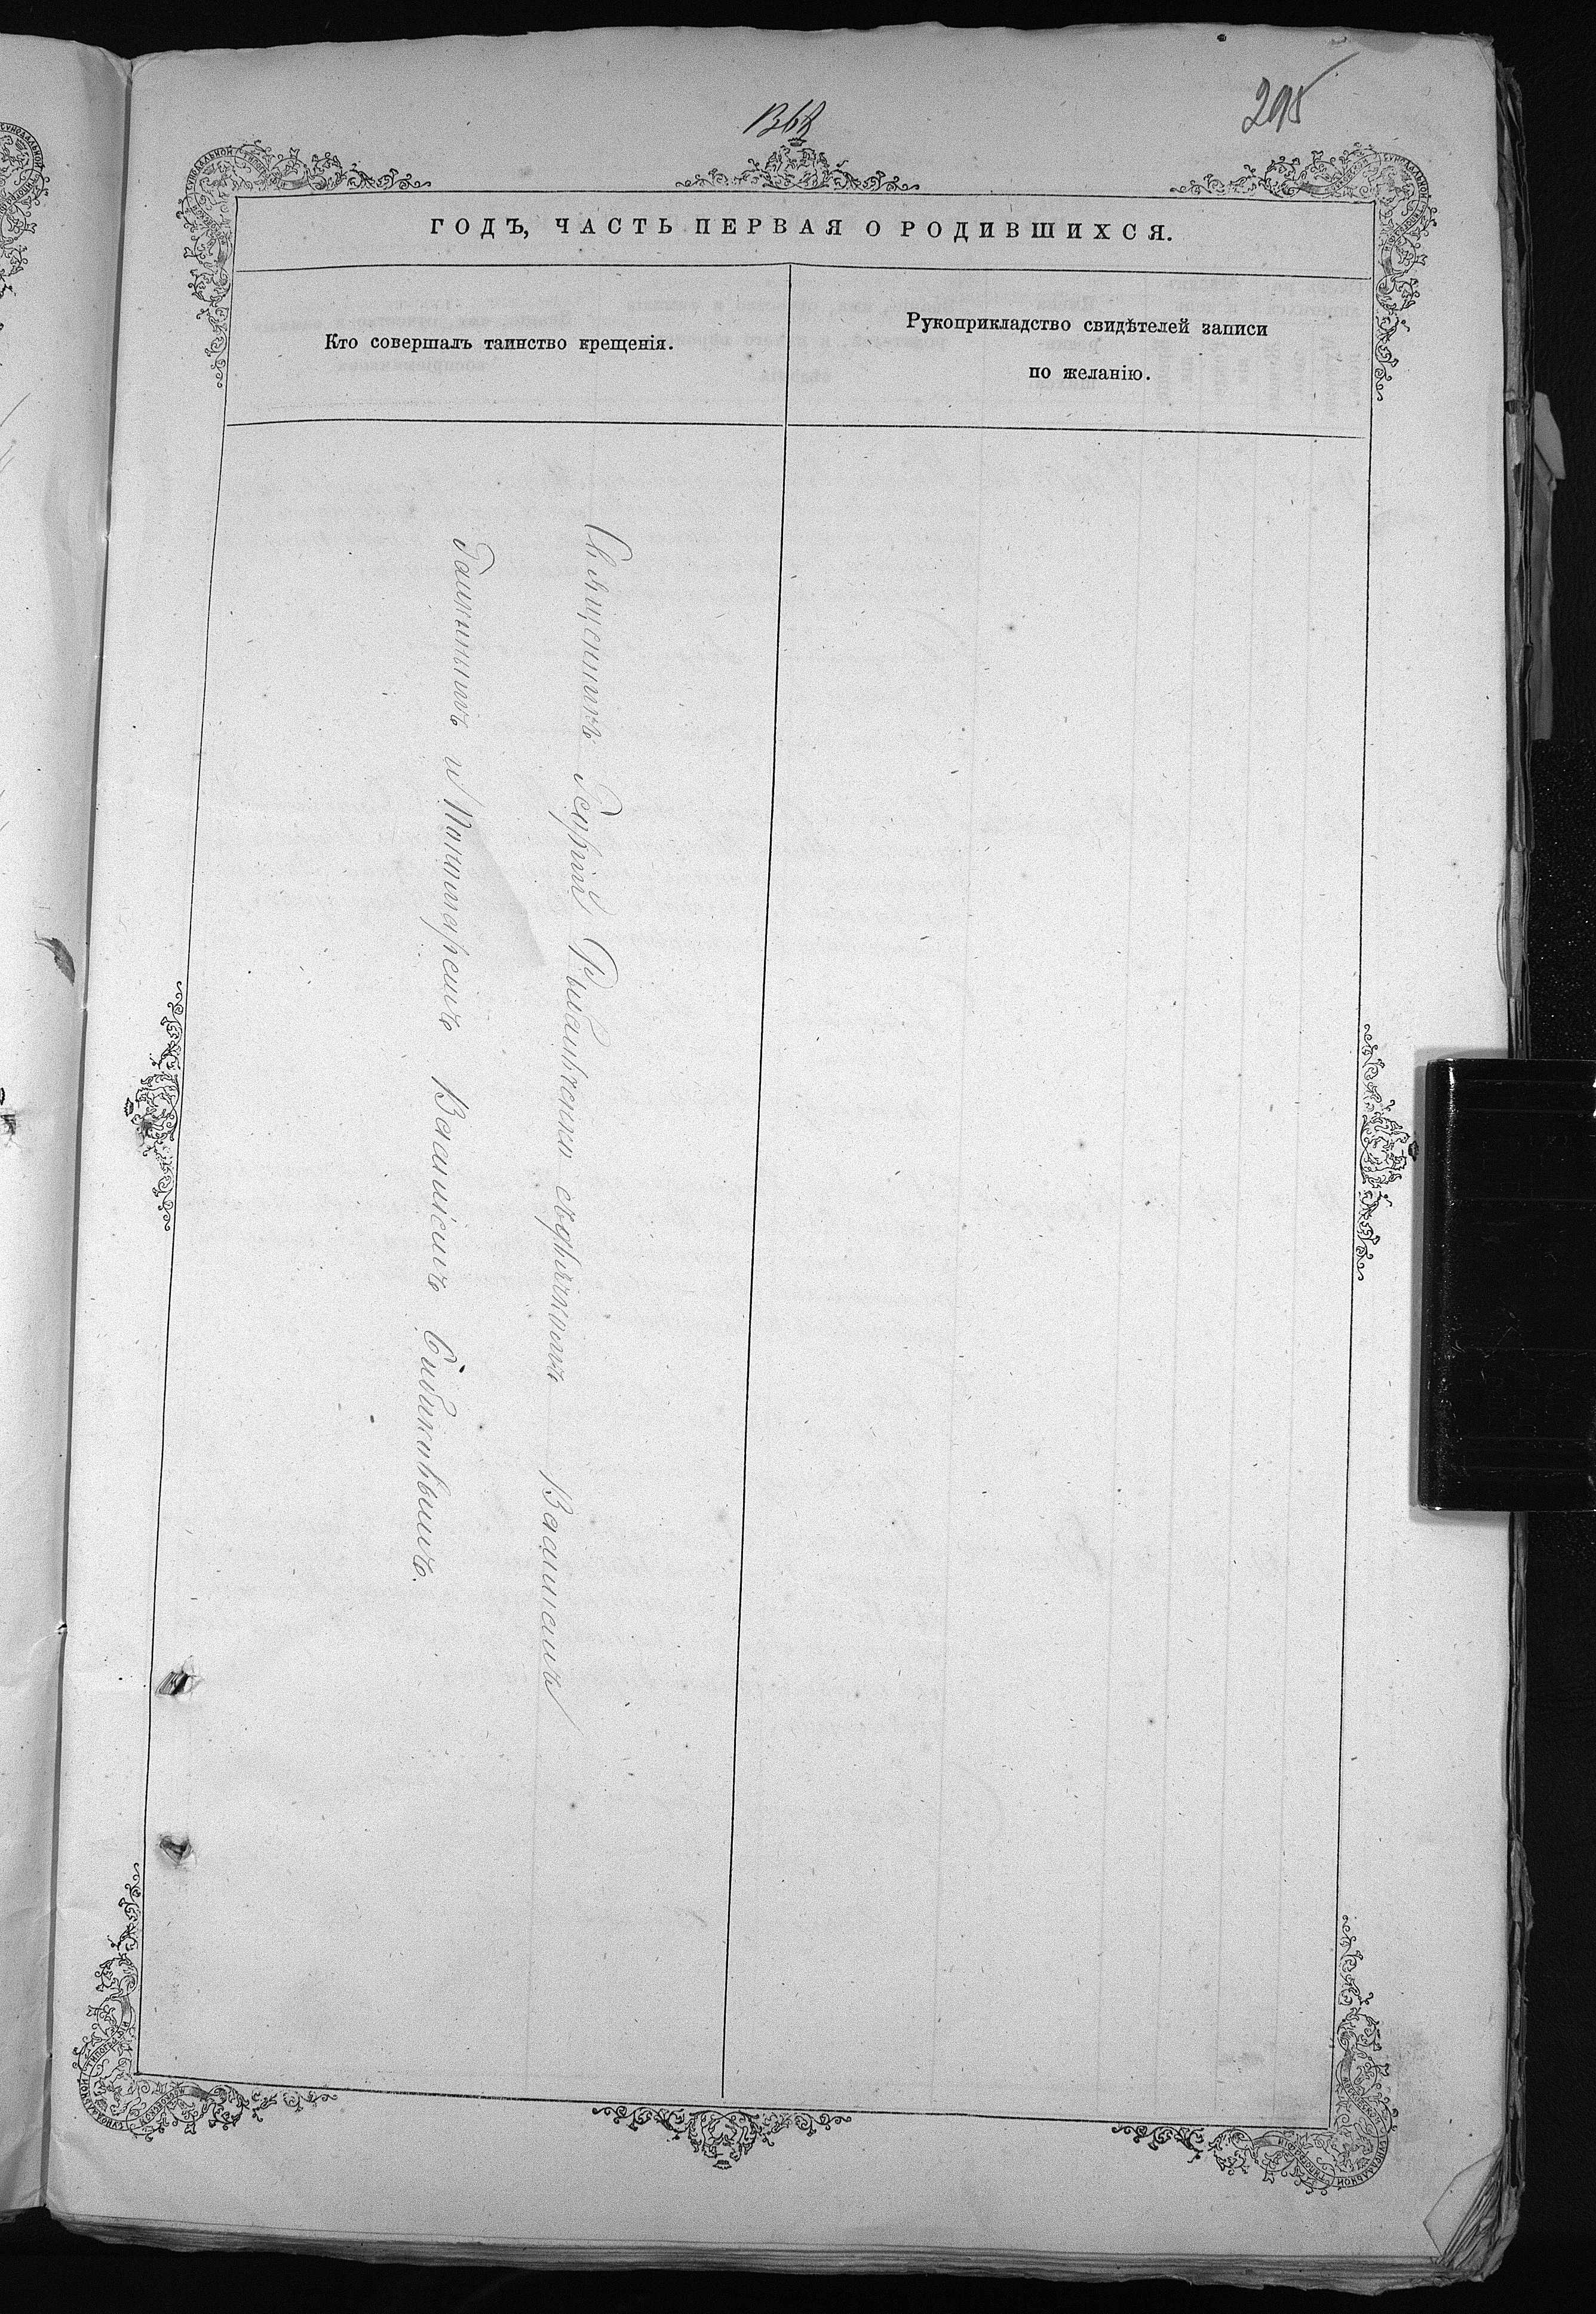 1368
295
ГОДЪ, ЧАСТЬ ПЕРВАЯ О РОДИВШИХСЯ.
Кто совершалъ таинство крещенія.
Рукоприкладство свидѣтелей записи
по желанію.
Священникъ Георгій съ дьячкомъ Василіемъ
Галкинымъ и Пономаремъ Василіемъ